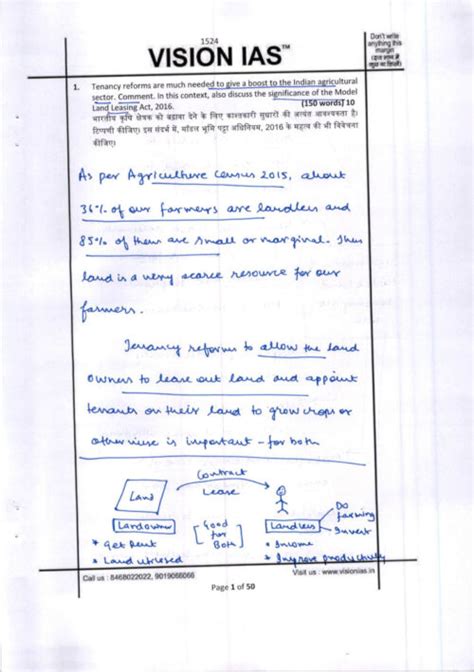 1524
VISION IAS™
Don't write
anything this
margin
1. Tenancy reforms are much needed to give a boost to the Indian agricultural
sector. Comment. In this context, also discuss the significance of the Model
Land Leasing Act, 2016.
(150 words) 10
भारतीय कृषि क्षेत्रक को बढ़ावा देने के लिए काश्तकारी सुधारों की अत्यंत आवश्यकता है।
टिप्पणी कीजिए। इस संदर्भ में, मॉडल भूमि पट्टा अधिनियम, 2016 के महत्व की भी विवेचना
कीजिए।
As per Agriculture Census 2015, about
36% of our farmers are landless and
85% of them are small or marginal. Thus
land is a very scarce resource for our
farmers.
Tenancy reforms to allow the land
owners to lease out land and appoint
tenants on their land to grow crops or
otherwise is important - for both
Contract
Lease
Land
Do
farming
Landowner
Good
for
Both
Landless
Invest
* Get Rent
* Income
* Land utilised
* Improve productivity
Call us : 8468022022, 9019066066
Visit us : www.visionias.in
Page 1 of 50